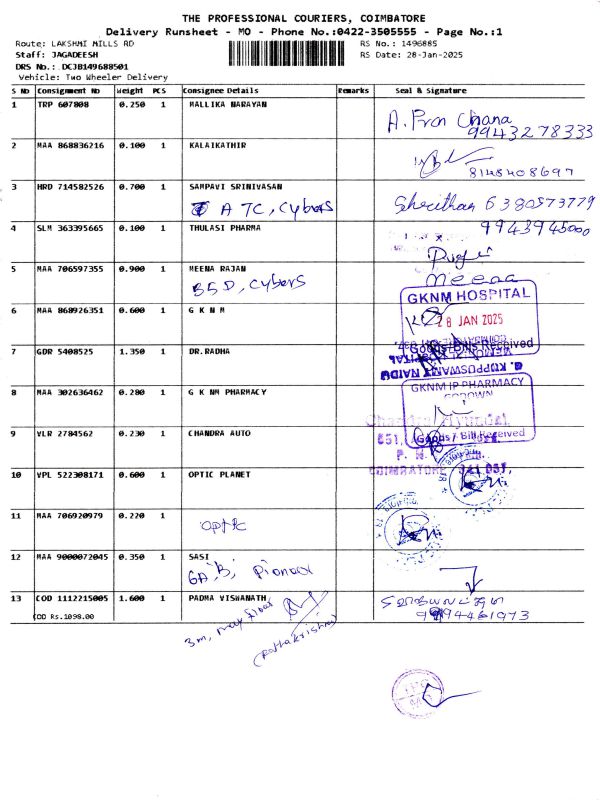 THE PROFESSIONAL COURIERS, COIMBATORE
Delivery Runsheet - MO - Phone No.:0422-3505555 - Page No.:1
Route: LAKSHMI MILLS RD RS No.: 1496885
Staff: JAGADEESH RS Date: 28-Jan-2025
DRS No.: DCJB149688501
Vehicle: Two Wheeler Delivery
S No Consignment No Weight PCS Consignee Details Remarks Seal & Signature
1 TRP 607808 0.250 1 MALLIKA NARAYAN
99432 78333
2 MAA 868836216 0.100 1 KALAIKATHIR
8148408697
3 HRD 714582526 0.700 1 SAMPAVI SRINIVASAN
A TC, Cybers
6380573779
4 SLM 363395665 0.100 1 THULASI PHARMA
9943945000
5 MAA 706597355 0.900 1 MEENA RAJAN
B5D, Cybers
meena
6 MAA 868926351 0.600 1 G K N M
GKNM HOSPITAL
28 JAN 2025
Goods/Bills Received
7 GDR 5408525 1.350 1 DR.RADHA
G. KUPPUSWAMY NAIDU
8 MAA 302636462 0.280 1 G K NM PHARMACY
GKNM IP PHARMACY
GODOWN
Goods / Bill Received
9 VLR 2784562 0.230 1 CHANDRA AUTO
COIMBATORE
10 VPL 522308171 0.600 1 OPTIC PLANET
11 MAA 706920979 0.220 1
optic
12 MAA 9000072045 0.350 1 SASI
6A, B, Pioneer
13 COD 1112215005 1.600 1 PADMA VISWANATH
COD Rs.1098.00
3m, may floor